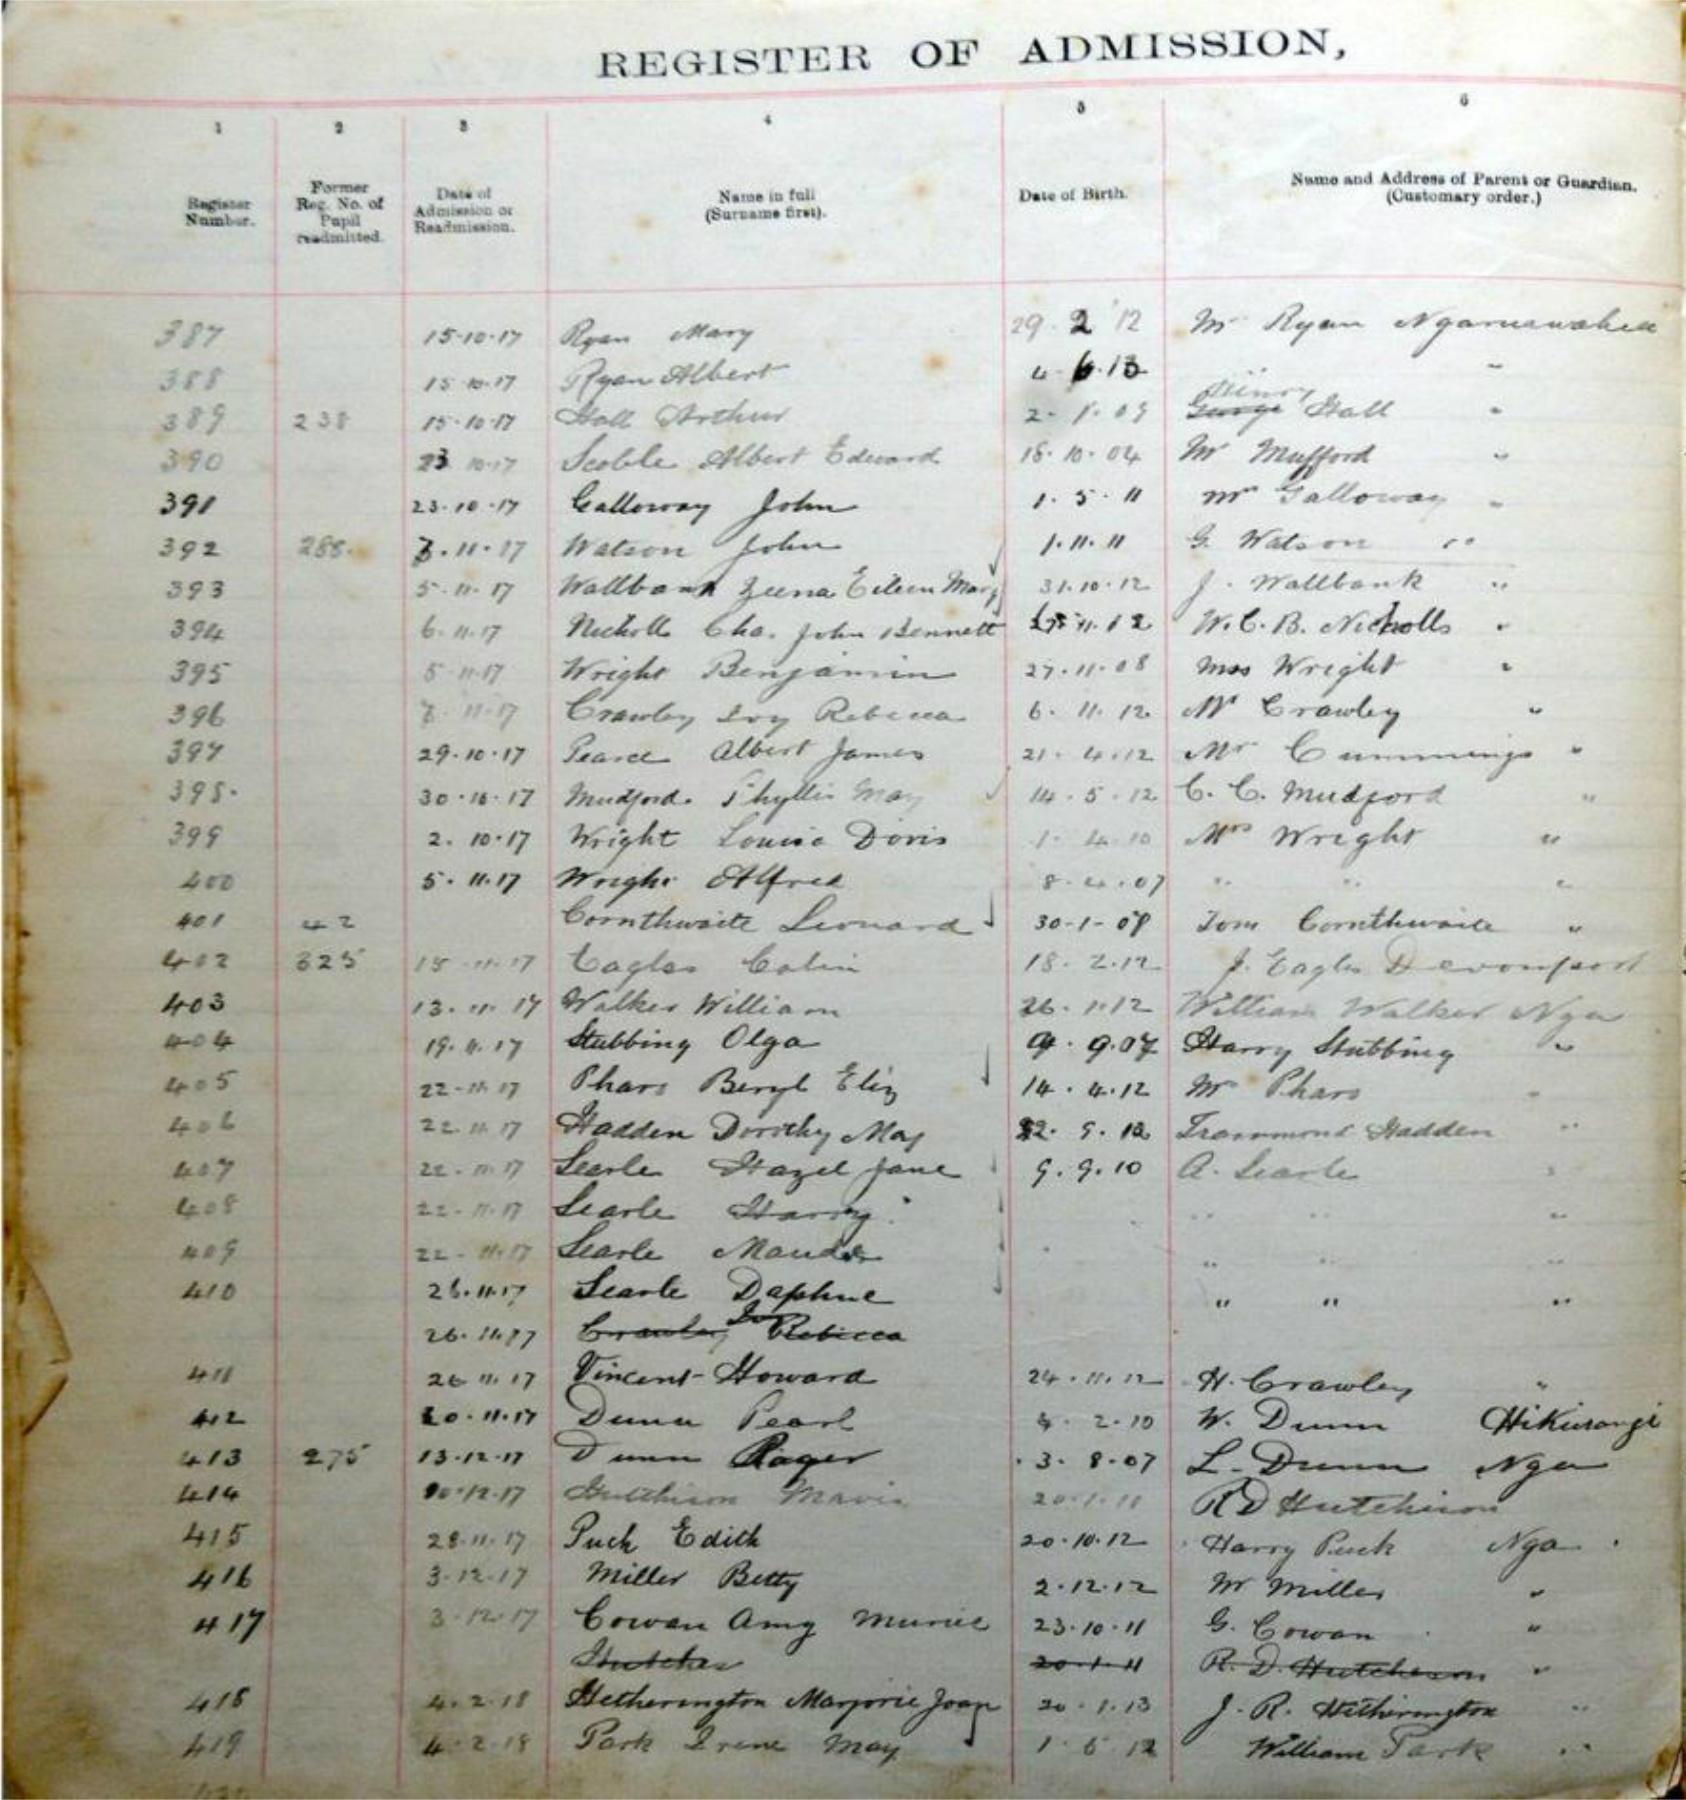 REGISTER OF ADMISSION,
1 2 3 4 5 6
Register Number. Former Reg. No. of Pupil readmitted. Date of Admission or Readmission. Name in full (Surname first). Date of Birth. Name and Address of Parent or Guardian. (Customary order.)
387 15-10-17 Ryan Mary 29. 2 '12 Mr Ryan Ngaruawahia
388 15 10.17 Ryan Albert 4. 6.13 "
389 238 15.10.17 Hall Arthur 2. 1. 09 George Henry Hall "
390 23 10.17 Scoble Albert Edward 18. 10. 04 Mr Mufford "
391 23.10.17 Galloway John 1. 5. 11 Mr Galloway "
392 288. .11.17 Watson John 1.11.11 G. Watson "
393 5.11.17 Wallbank Eileen Mary 31.10.12 J. Wallbank "
394 6.11.17 Nicholls Cha. John Bennett 11.12 W.C.B. Nicholls "
395 5.11.17 Wright Benjamin 27.11.08 Mrs Wright "
396 7.11.17 Crawley Ivy Rebecca 6. 11. 12 Mr Crawley "
397 29.10.17 Pearce Albert James 21. 4.12 Mr Cummings "
398. 30.10.17 Mudford. Phyllis May 14. 5. 12 C. C. Mudford "
399 2. 10.17 Wright Louisa Doris 1. 4.10 Mrs Wright "
400 5. 11.17 Wright Alfred 8. 4.07 " " "
401 42 Cornthwaite Leonard 30-1-08 Tom Cornthwaite "
402 325 15.11.17 Eagles Colin 18. 2.12 J. Eagles Devonport
403 13. 11. 17 Walker William 26. 1.12 William Walker Nga
404 19.11.17 Stubbing Olga 9. 9.07 Harry Stubbing "
405 22-11.17 Phars Beryl Eliz 14. 4.12 Mr Phars "
406 22.11.17 Hadden Dorothy May 22. 9. 12 Hadden "
407 22.11.17 Searle Hazel Jane 9. 9.10 A. Searle "
408 22.11.17 Searle Harry " " "
409 22.11.17 Searle Maude " " "
410 26.11.17 Searle Daphne " " "
26.11.17 Crawley Ivy Rebecca
411 26 11.17 Vincent Howard 24.11.12 H. Crawley "
412 20.11.17 Dunn Pearl 4. 2.10 W. Dunn Hikurangi
413 275 13.12.17 Dunn Roger 3. 8.07 L. Dunn Nga
414 10.12.17 Hutchison Mavis 20.1.11 R D Hutchison
415 28.11.17 Puck Edith 20.10.12 Harry Puck Nga
416 3.12.17 Miller Betty 2.12.12 Mr Miller "
417 3.12.17 Cowan Amy Muriel 23.10.11 G. Cowan "
Hutches 20.1.11 R. D. Hutcheson "
418 4.2.18 Hetherington Marjorie Joan 20.1.13 J. R. Hetherington "
419 4.2.18 Park Irene May 1. 5 12 William Park "